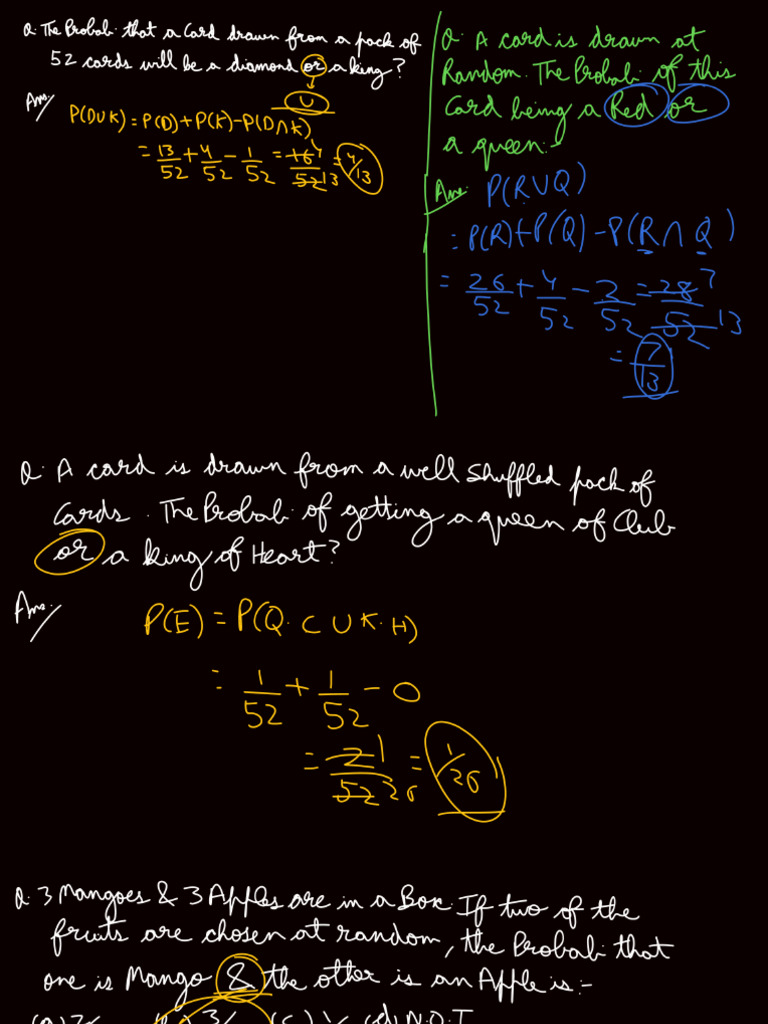 Q. The Probab. that a Card drawn from a pack of
52 cards will be a diamond or a king?
∪
Ans/
P(D∪K) = P(D)+P(K)-P(D∩K)
= 13/52 + 4/52 - 1/52 = 16/52 4 13 = 4/13
Q. A card is drawn at
Random. The Probab. of this
Card being a Red or
a queen:-
Ans. P(R∪Q)
= P(R)+P(Q)-P(R∩Q)
= 26/52 + 4/52 - 2/52 = 28/52 7 13
= 7/13
Q. A card is drawn from a well shuffled pack of
Cards. The Probab. of getting a queen of Club
or a king of Heart?
Ans./
P(E) = P(Q.C ∪ K.H)
= 1/52 + 1/52 - 0
= 2/52 1 26 = 1/26
Q. 3 Mangoes & 3 Apples are in a Box. If two of the
fruits are chosen at random, the Probab. that
one is Mango & the other is an Apple is:-
(d) N.O.T